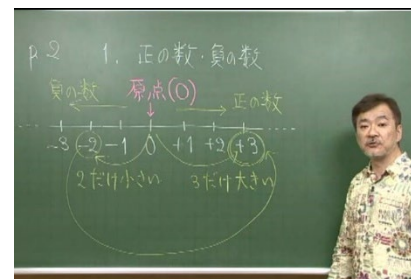 P.2 1. 正の数・負の数
負の数 原点(0) 正の数
-3 -2 -1 0 +1 +2 +3
2だけ小さい 3だけ大きい